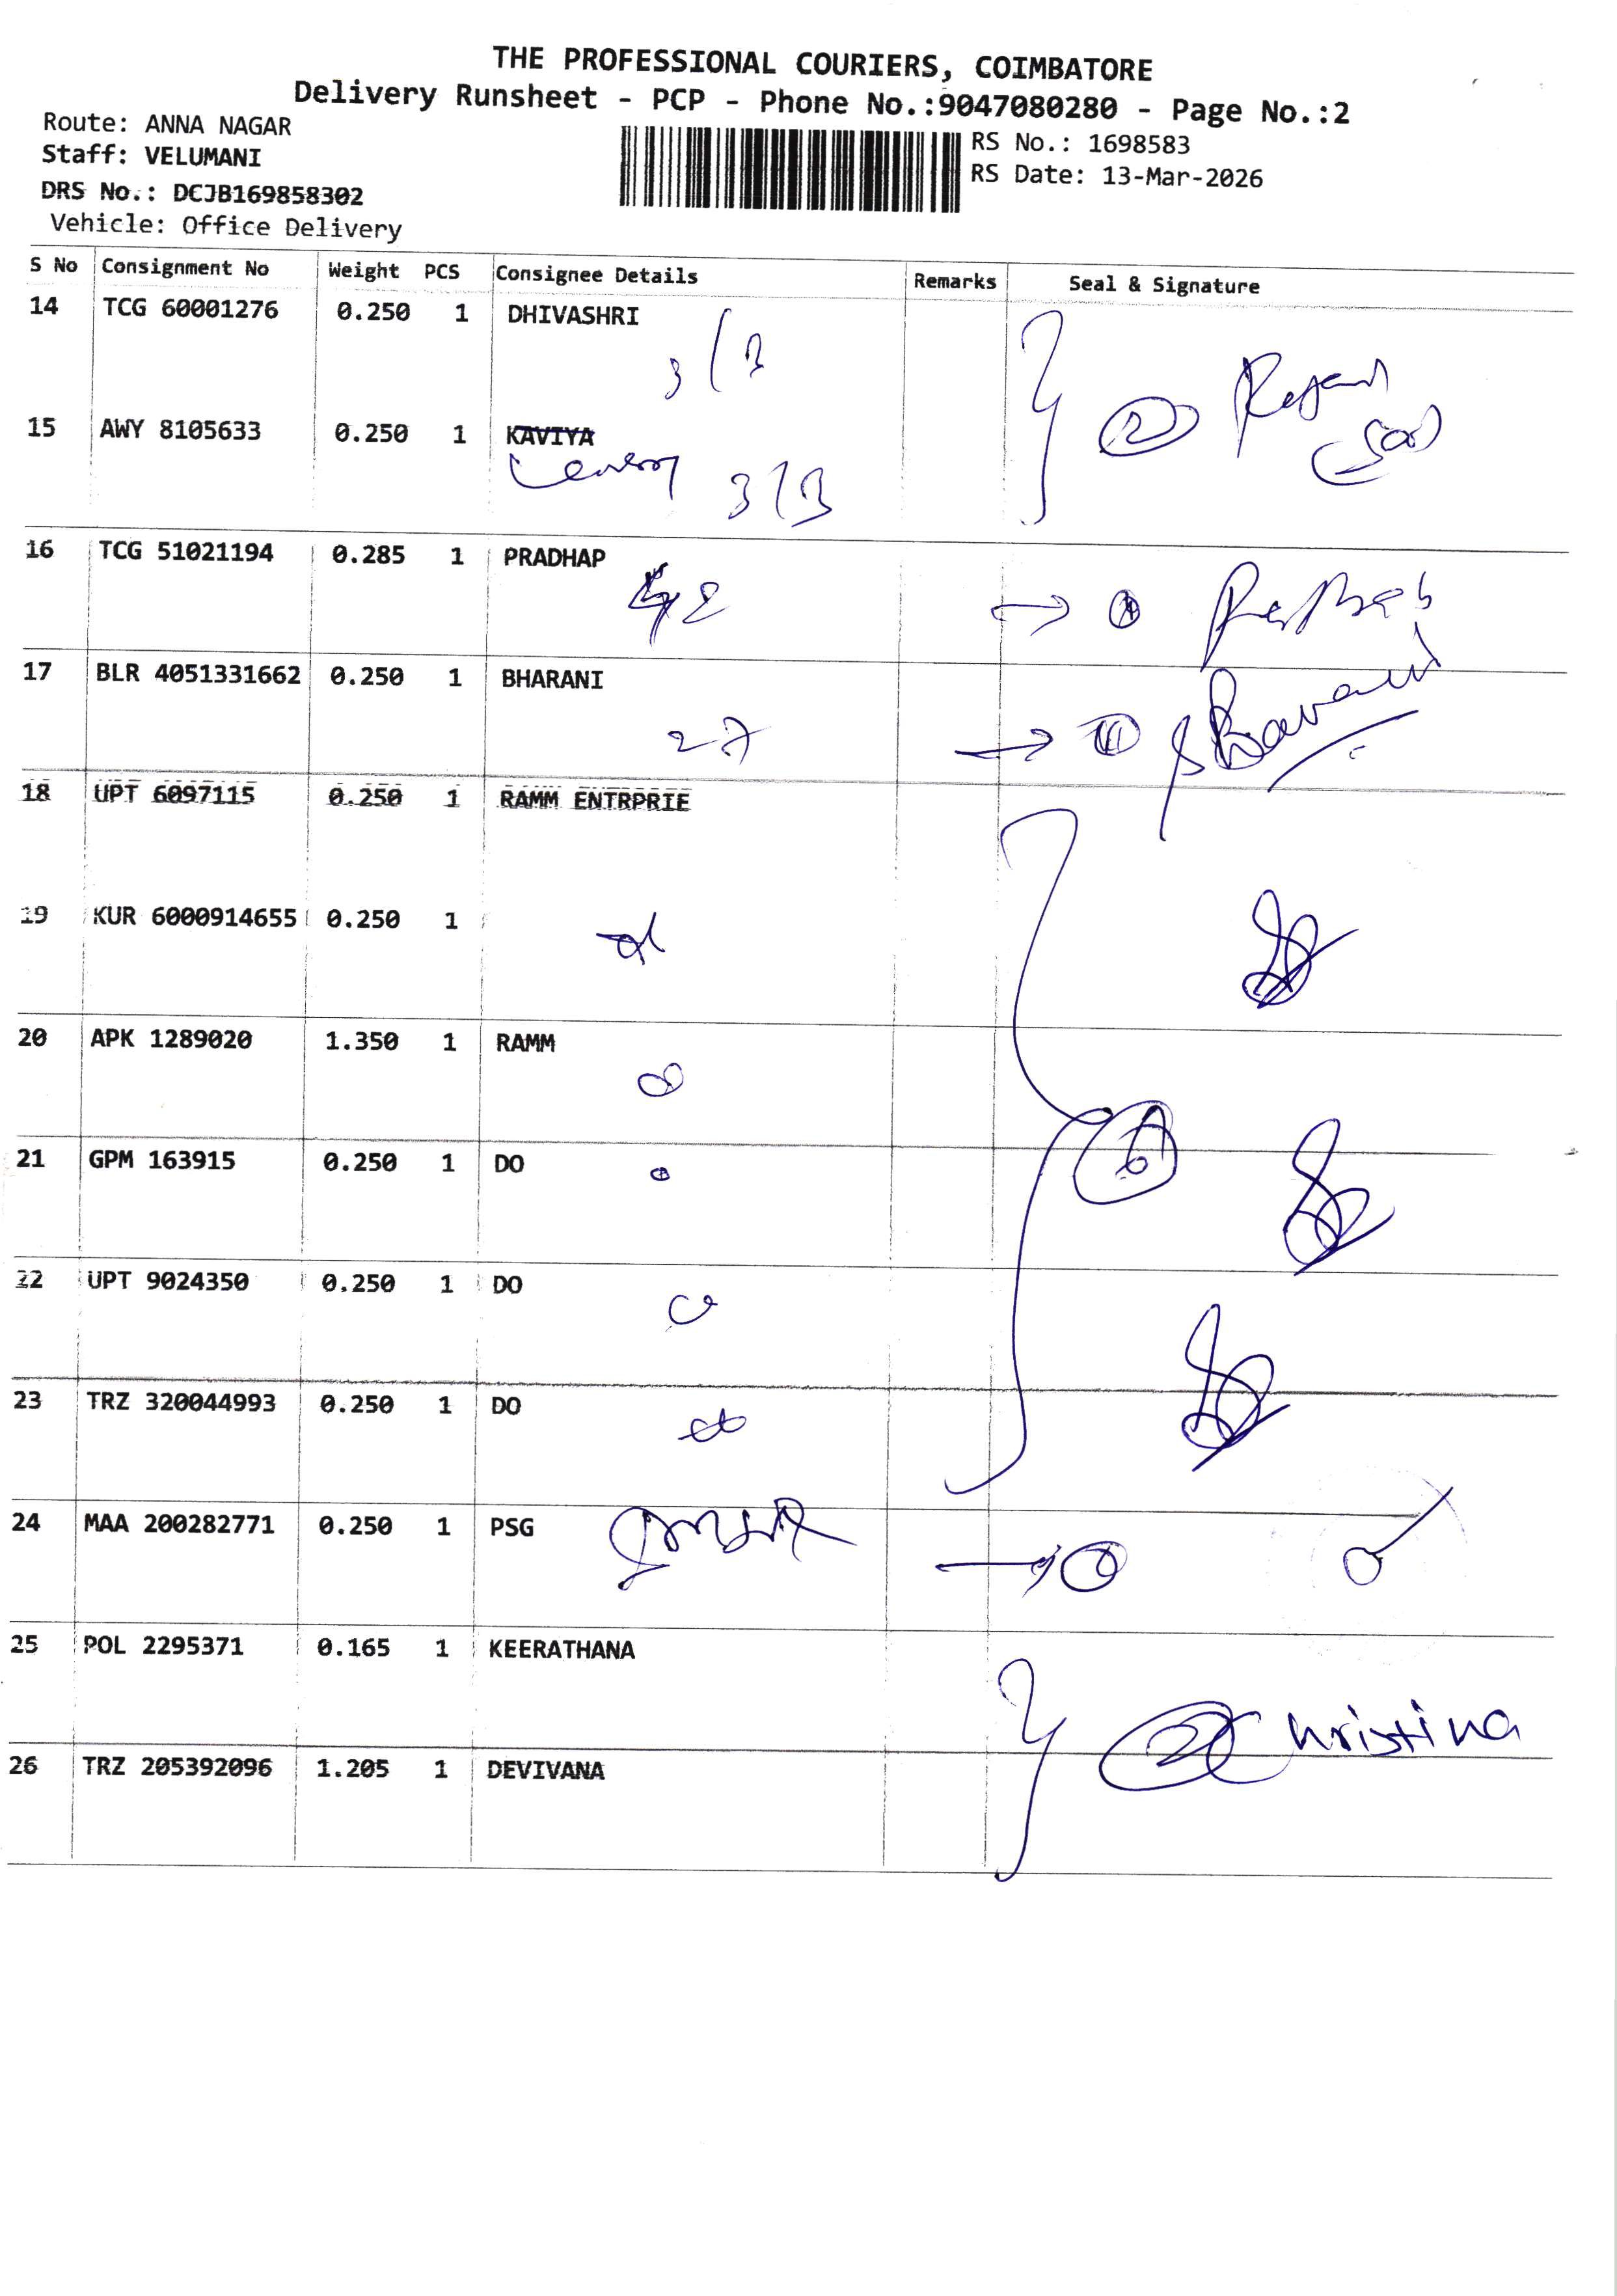 THE PROFESSIONAL COURIERS, COIMBATORE
Delivery Runsheet - PCP - Phone No.:9047080280 - Page No.:2
Route: ANNA NAGAR
Staff: VELUMANI
DRS No.: DCJB169858302
Vehicle: Office Delivery
RS No.: 1698583
RS Date: 13-Mar-2026
S No Consignment No Weight PCS Consignee Details Remarks Seal & Signature
14 TCG 60001276 0.250 1 DHIVASHRI
3/3
15 AWY 8105633 0.250 1 KAVIYA
2
3/3
16 TCG 51021194 0.285 1 PRADHAP
17 BLR 4051331662 0.250 1 BHARANI
27
18 UPT 6097115 0.250 1 RAMM ENTRPRIE
19 KUR 6000914655 0.250 1
20 APK 1289020 1.350 1 RAMM
21 GPM 163915 0.250 1 DO
6
22 UPT 9024350 0.250 1 DO
23 TRZ 320044993 0.250 1 DO
24 MAA 200282771 0.250 1 PSG
25 POL 2295371 0.165 1 KEERATHANA
2 Christina
26 TRZ 205392096 1.205 1 DEVIVANA